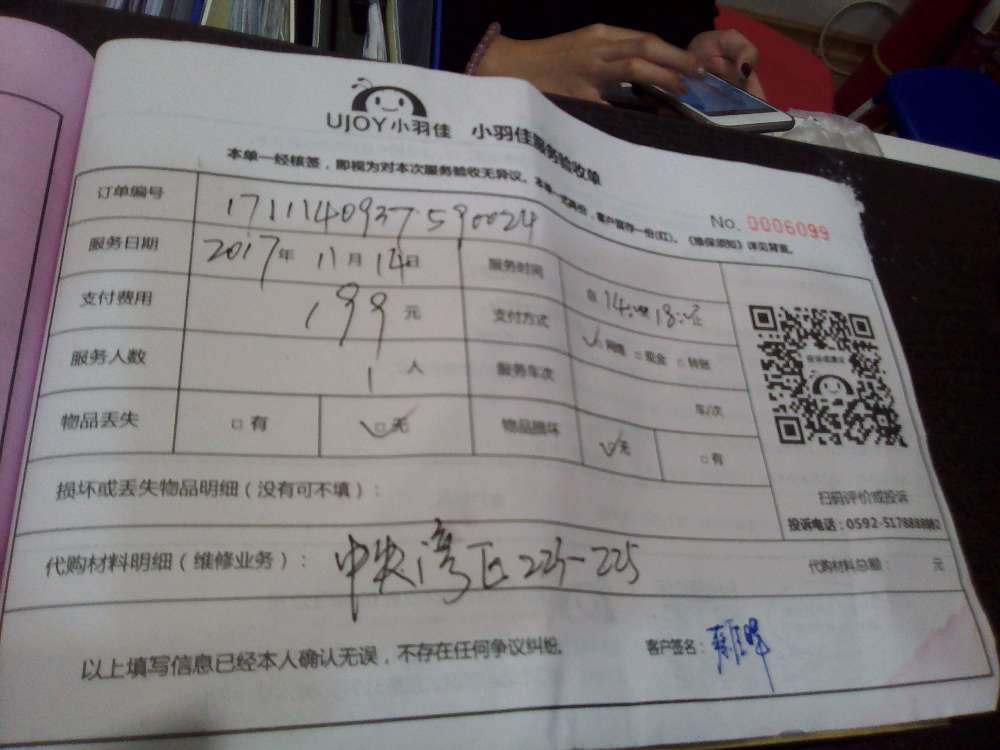 UJOY小羽佳 小羽佳服务验收单
本单一经核签,即视为对本次服务验收无异议。本单一式两份,客户留存一份(红)。《维保须知》详见背面。
No. 0006099
订单编号 1711140937590024
服务日期 2017年 11月 14日 服务时间 自 14:00 18:00 止
支付费用 199 元 支付方式 ☑网络 □现金 □转账
服务人数 1 人 服务车次 车/次
物品丢失 □有 ☑无 物品损坏 ☑无 □有
损坏或丢失物品明细(没有可不填):
扫码评价或投诉
投诉电话:0592-5178888
代购材料明细(维修业务): 中央湾区223-225 代购材料总额: 元
以上填写信息已经本人确认无误,不存在任何争议纠纷。 客户签名: